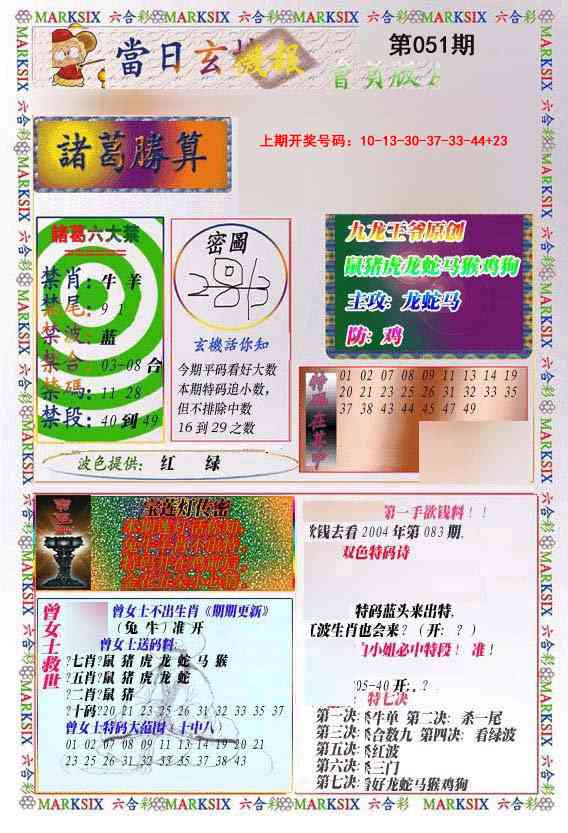 MARKSIX 六合彩 MARKSIX 六合彩 MARKSIX 六合彩 MARKSIX 六合彩 MARKSIX
當日玄機報
第051期
諸葛勝算
上期开奖号码：10-13-30-37-33-44+23
諸葛六大禁
禁肖：牛 羊
禁尾：9 1
禁波：蓝
禁合：03-08 合
禁碼：11 28
禁段：40 到 49
密圖
玄機話你知
今期平码看好大数
本期特码追小数，
但不排除中数
16 到 29 之数
九龙王爷原创
鼠猪虎龙蛇马猴鸡狗
主攻：龙蛇马
防：鸡
特碼在其中
01 02 07 08 09 11 13 14 19
20 21 23 25 26 31 32 33 35
37 38 43 44 45 47 49
波色提供： 红 绿
宝莲灯传密
曾女士救世
曾女士不出生肖《期期更新》
（兔 牛）准 开
曾女士送码料:
七肖 鼠 猪 虎 龙 蛇 马 猴
五肖 鼠 猪 虎 龙 蛇
二肖 鼠 猪
十码 20 21 23 25 26 31 32 33 35 37
曾女士特码大范围（十中八）
01 02 07 08 09 11 13 14 19 20 21
23 25 26 31 32 33 35 37 38 43
第一手欲钱料！！
欲钱去看 2004 年第 083 期,
双色特码诗
特码蓝头来出特,
红波生肖也会来？（开: ？）
白小姐必中特段！ 准！
05-40 开: . ?
特七决
第一决:杀牛单 第二决: 杀一尾
第三决:杀合数九 第四决: 看绿波
第五决:杀红波
第六决:杀三门
第七决:看好龙蛇马猴鸡狗
MARKSIX 六合彩 MARKSIX 六合彩 MARKSIX 六合彩 MARKSIX 六合彩 MARKSIX